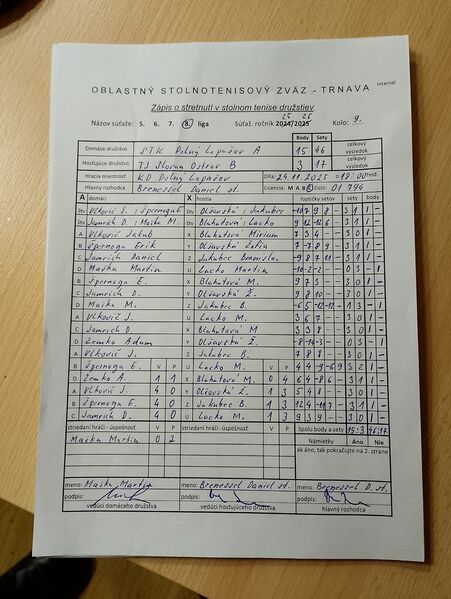 Internal
OBLASTNÝ STOLNOTENISOVÝ ZVÄZ - TRNAVA
Zápis o stretnutí v stolnom tenise družstiev
25 26
Názov súťaže: 5. 6. 7. 8. liga Súťaž. ročník 2024/2025 Kolo: 9.
Body Sety
Domáce družstvo STK Dolný Lopašov A 15 46 celkový výsledok
Hosťujúce družstvo TJ Slovan Ostrov B 3 17 celkový výsledok
Hracia miestnosť KD Dolný Lopašov Dňa: 24.11.2025 o 18:00 hod.
Hlavný rozhodca Brenessel Daniel st. Licencia: M A B C číslo: 01 794
A domáci X hostia loptičky setov sety body
Štv Štv
Štv Štv Blahutová / Lacko
A Vlkovič Jakub X Blahutová Miriam 7 3 4 - - 3 0 1 -
B Špernoga Erik Y Olšavská Žofia
C Jamrich Daniel Z Jakubec Branislav
D Maška Martin U Lacko Martin
B Špernoga E. X Blahutová M. 9 7 3 - - 3 0 1 -
C Jamrich D. Y Olšavská Ž. 9 8 10 - - 3 0 1 -
D Maška M. Z Jakubec B.
A Vlkovič J. U Lacko M. 3 6 7 - - 3 0 1 -
C Jamrich D. X Blahutová M 3 3 8 - - 3 0 1 -
D Zemko Adam Y Olšavská Ž.
A Vlkovič J. Z Jakubec B. 7 8 8 - - 3 0 1 -
B Špernoga E. V P U Lacko M. V P
D Zemko A. 1 1 X Blahutová M. 0 4
A Vlkovič J. 4 0 Y Olšavská Ž. 1 3 5 4 8 - - 3 0 1 -
B Špernoga E. 4 0 Z Jakubec B. 1 3
C Jamrich D. 4 0 U Lacko M. 1 3 9 3 9 - - 3 0 1 -
striedaní hráči - úspešnosť V P striedaní hráči - úspešnosť V P Spolu body a sety: 15:3 46:17
Maška Martin 0 2 Námietky Áno Nie
ak áno, tak pokračujte na 2. strane
meno: Maška Martin meno: Brenessel Daniel st. meno: Brenessel D. st.
podpis: podpis: podpis:
vedúci domáceho družstva vedúci hosťujúceho družstva hlavný rozhodca